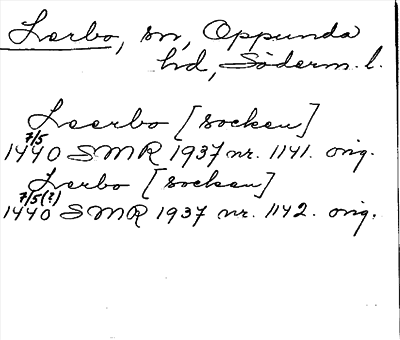 Lerbo, sn, Oppunda
hd, Söderm. l.
Leerbo [socken]
7/5
1440 SMR 1937 nr. 1141. orig.
Lerbo [socken]
7/5(?)
1440 SMR 1937 nr. 1142. orig.